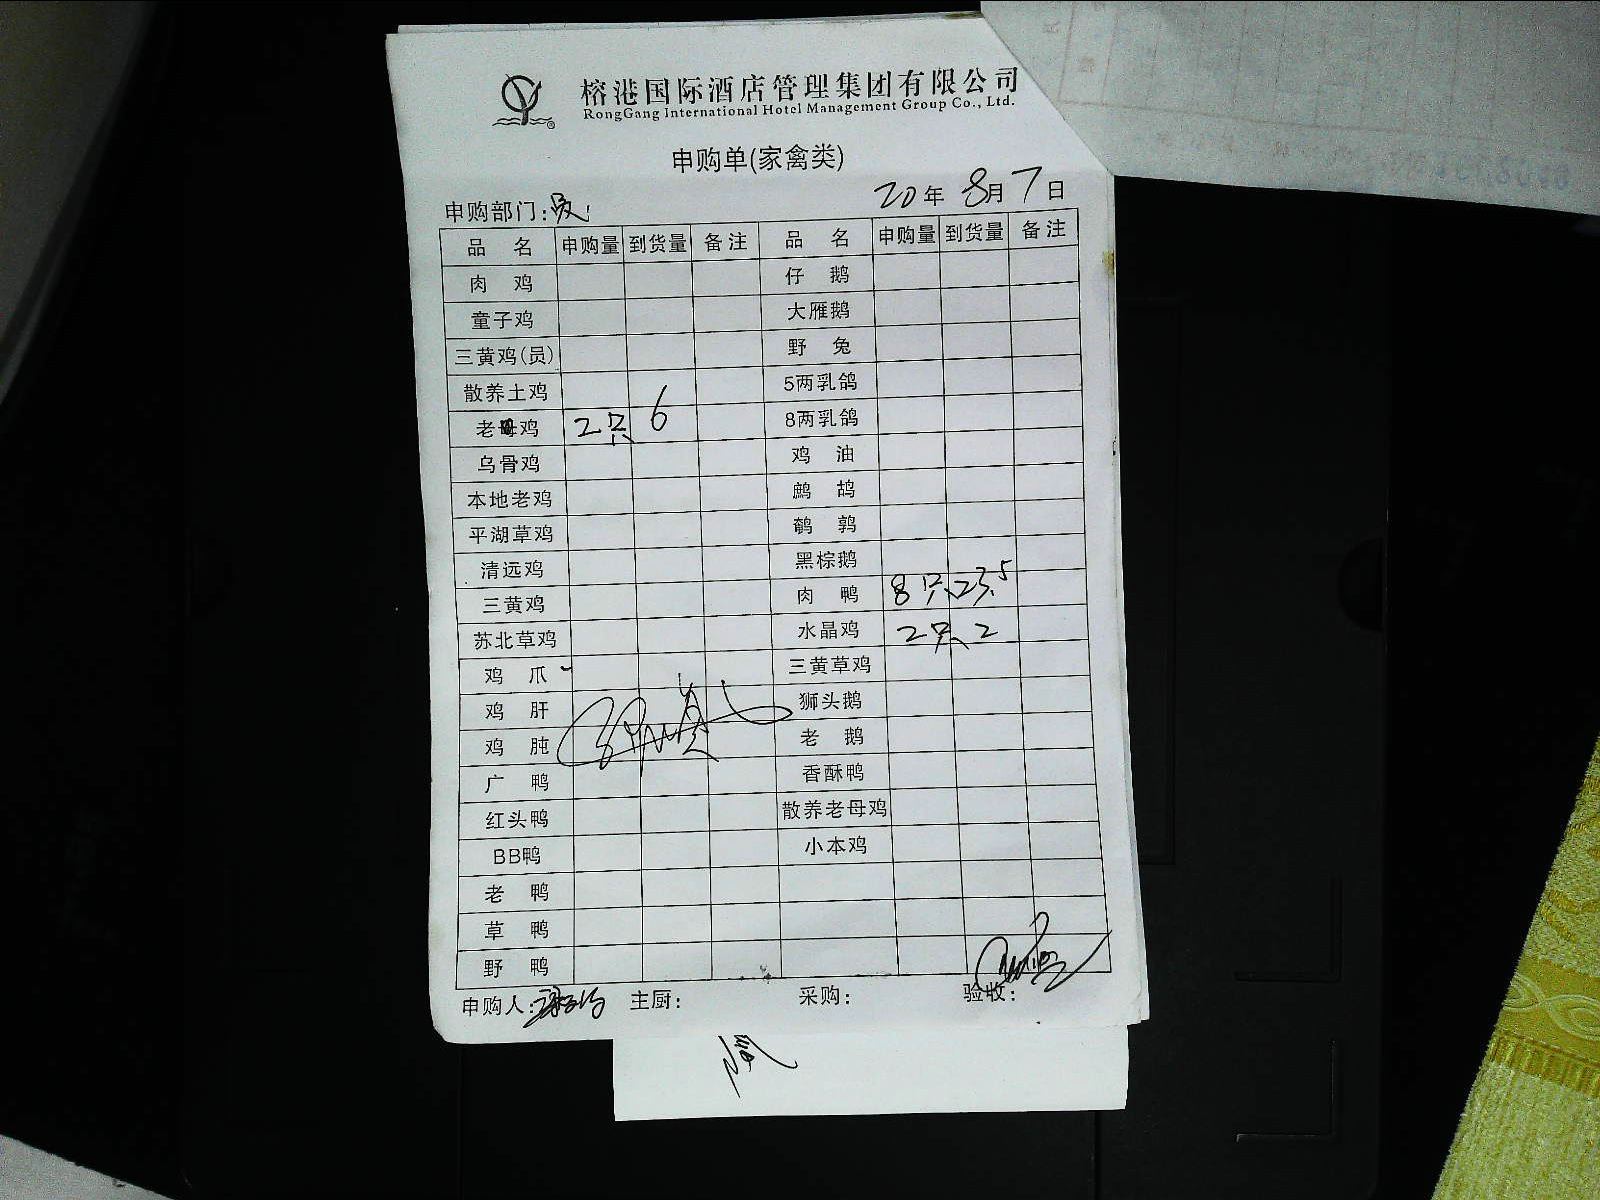 榕港国际酒店管理集团有限公司
RongGang International Hotel Management Group Co., Ltd.
申购单(家禽类)
申购部门: 20年 8月 7日
品 名 申购量 到货量 备注 品 名 申购量 到货量 备注
肉 鸡 仔 鹅
童子鸡 大雁鹅
三黄鸡(员) 野 兔
散养土鸡 5两乳鸽
老母鸡 2只 6 8两乳鸽
乌骨鸡 鸡 油
本地老鸡 鹧 鸪
平湖草鸡 鹌 鹑
清远鸡 黑棕鹅
三黄鸡 肉 鸭 8只 23.5
苏北草鸡 水晶鸡 2只 2
鸡 爪 三黄草鸡
鸡 肝 狮头鹅
鸡 肫 老 鹅
广 鸭 香酥鸭
红头鸭 散养老母鸡
BB鸭 小本鸡
老 鸭
草 鸭
野 鸭
申购人: 主厨: 采购: 验收: